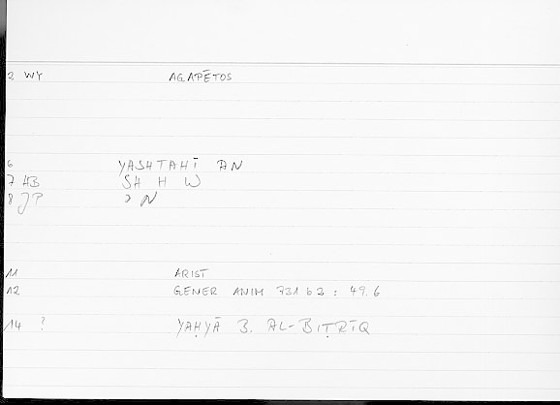 2 WY AGAPĒTOS
6 YASHTAHĪ AN
7 HB SH H W
8 JP N
11 ARIST
12 GENER ANIM 731 b 3 : 49.6
14 ? YAḤYĀ B. AL-BIṬRĪQ